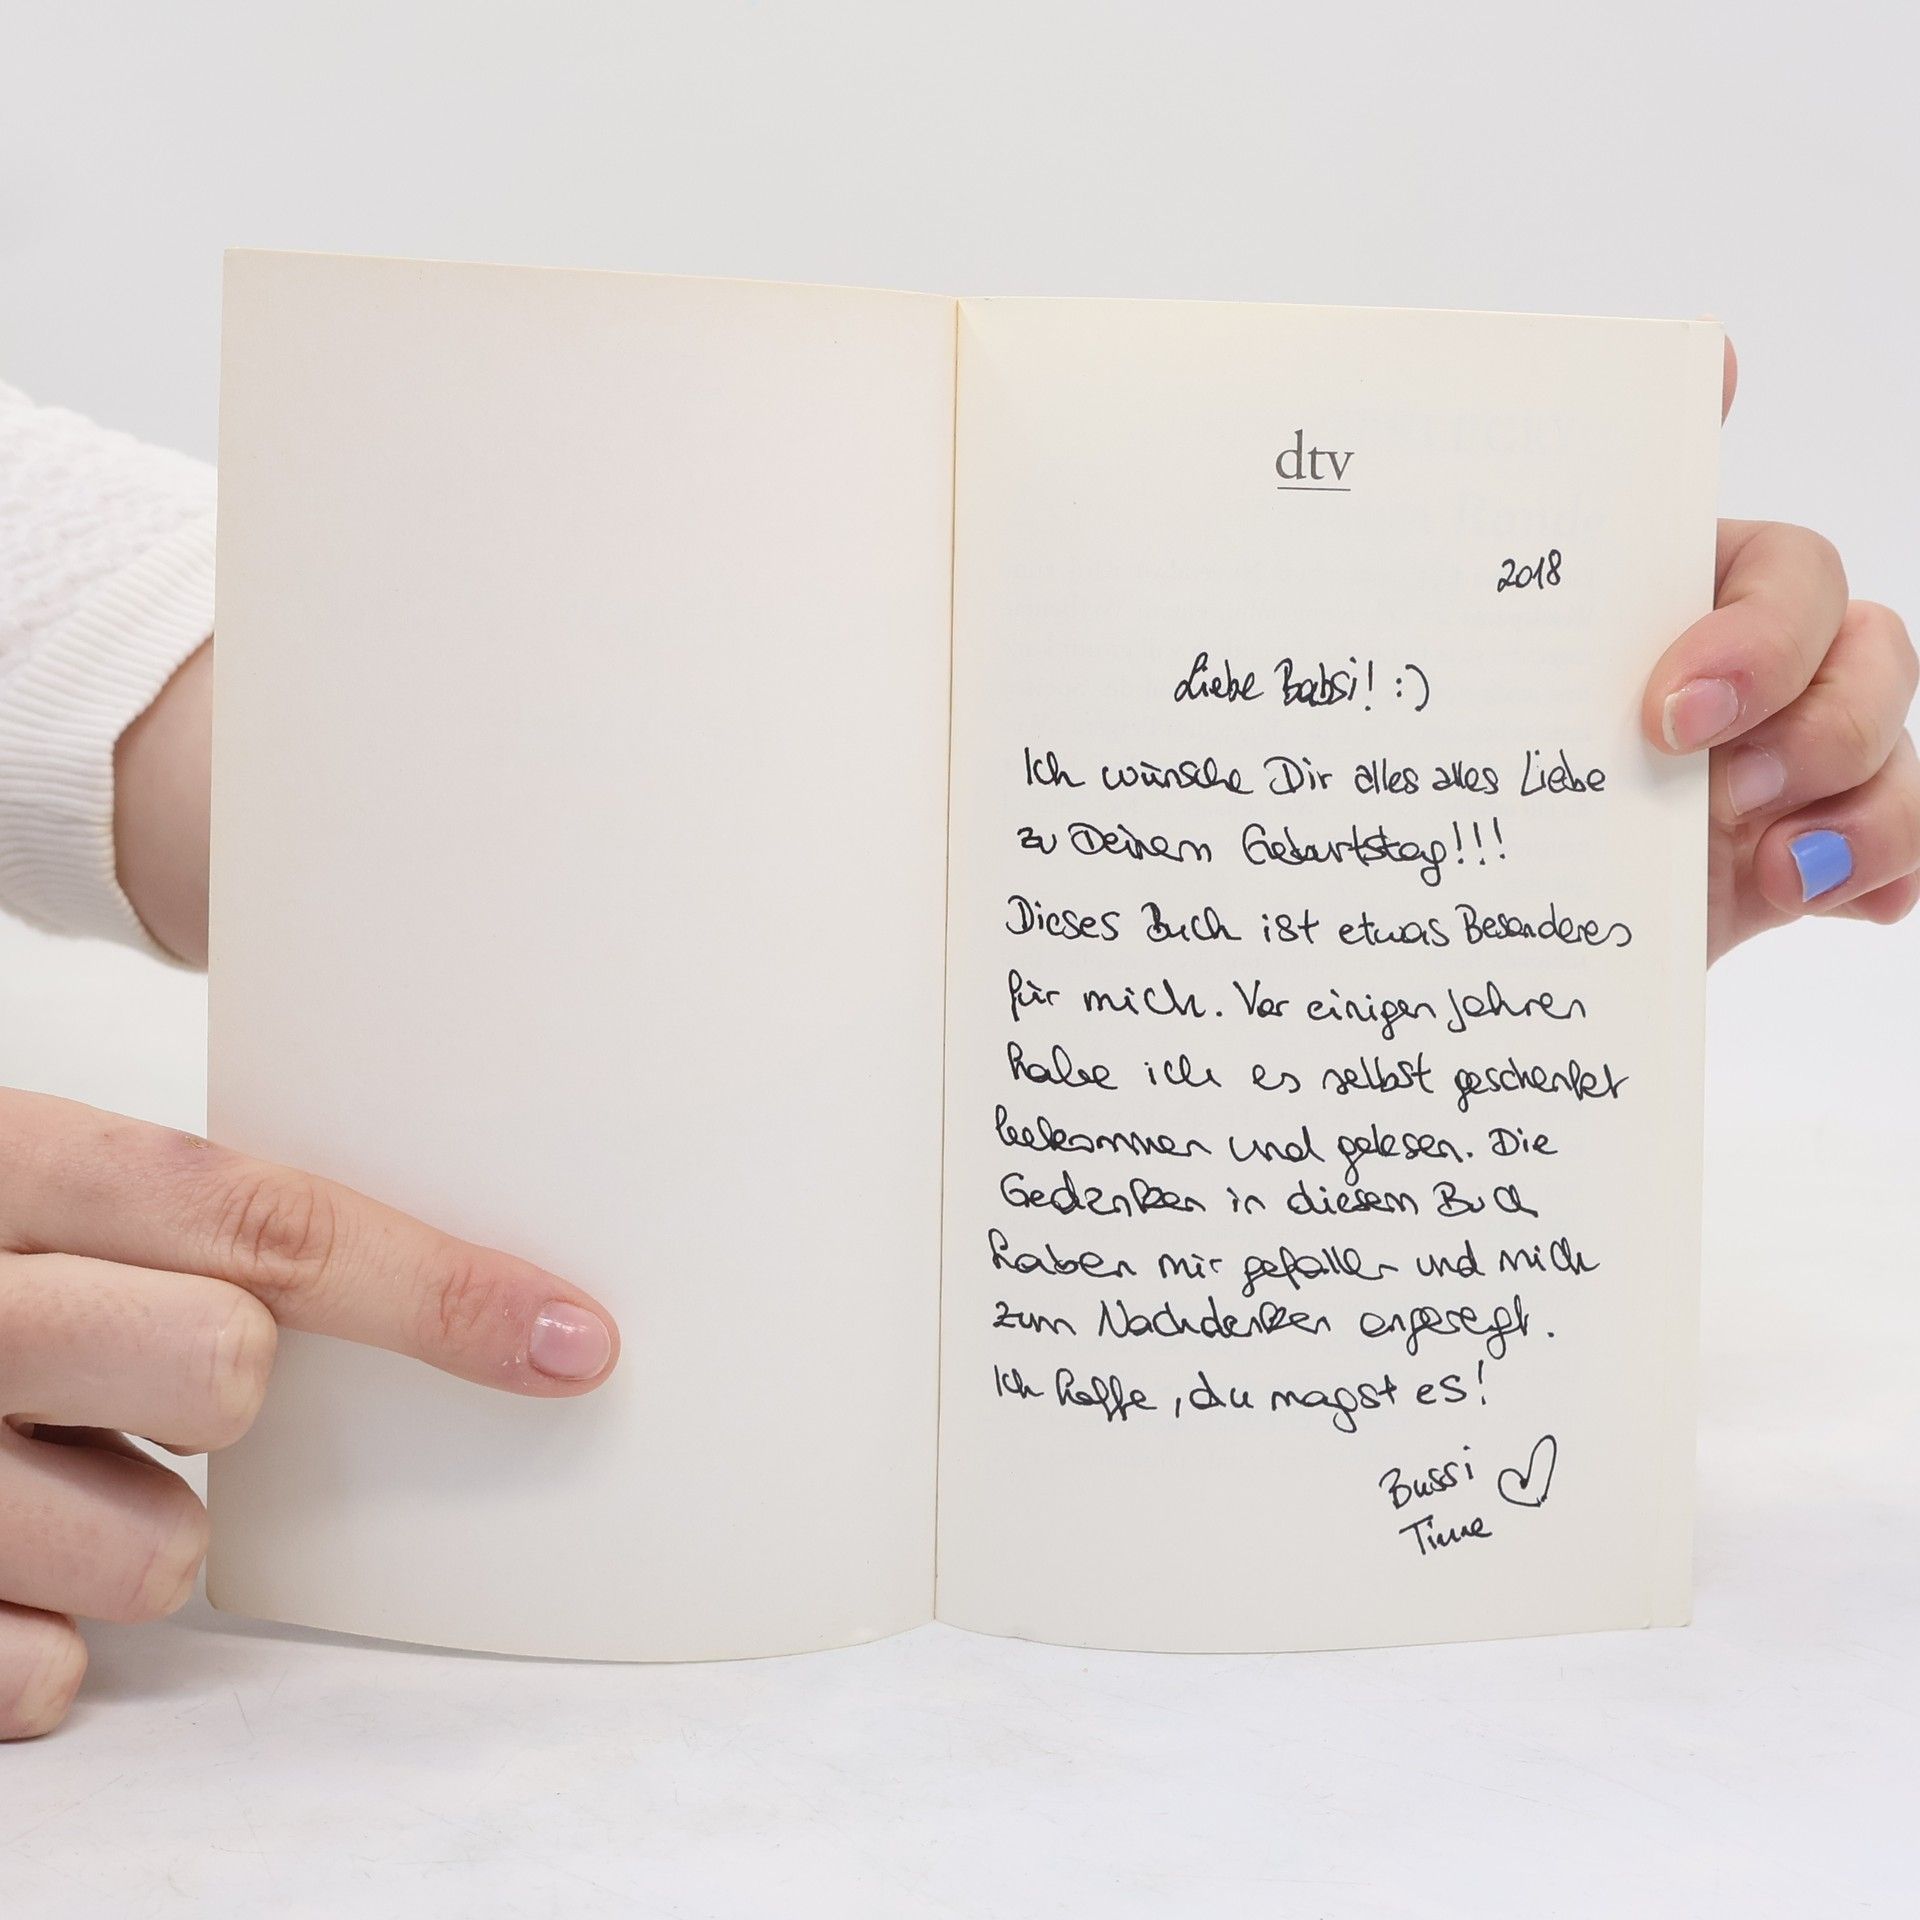 dtv
2018
Liebe Babsi! :)
Ich wünsche Dir alles alles Liebe
zu Deinem Geburtstag!!!
Dieses Buch ist etwas Besonderes
für mich. Vor einigen Jahren
habe ich es selbst geschenkt
bekommen und gelesen. Die
Gedanken in diesem Buch
haben mir gefallen und mich
zum Nachdenken angeregt.
Ich hoffe, du magst es!
Bussi